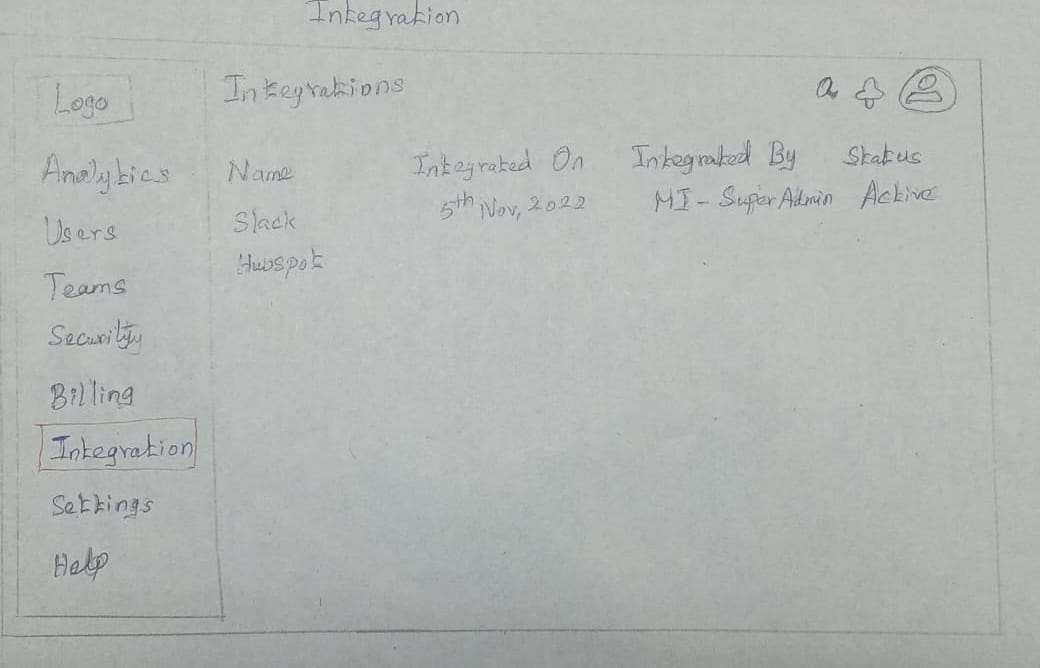 Integration
Logo
Analytics
Users
Teams
Security
Billing
Integration
Settings
Help
Integrations
Name Integrated On Integrated By Status
Slack 5th Nov, 2022 MI - Super Admin Active
Hubspot